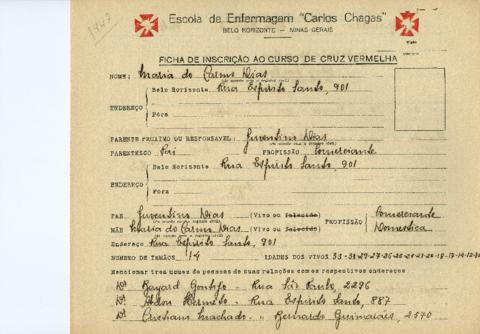 1943
Escola de Enfermagem "Carlos Chagas"
BELO HORIZONTE — MINAS GERAIS
FICHA DE INSCRIÇÃO AO CURSO DE CRUZ VERMELHA
NOME: Maria do Carmo Dias
Belo Horizonte Rua Espirito Santo, 901
ENDEREÇO
Fóra
PARENTE PROXIMO OU RESPONSAVEL: Juventino Dias
PARENTESCO Pai PROFISSÃO Comerciante
Belo Horizonte Rua Espirito Santo, 901
ENDEREÇO
Fóra
PAE Juventino Dias (Vivo ou Falecido) Comerciante
PROFISSÃO
MÃE Maria do Carmo Dias (Viva ou Falecida) Domestica
Endereço Rua Espirito Santo, 901
NUMERO DE IRMÃOS 14 IDADES DOS VIVOS
Mencionar tres nomes de pessoas de suas relações com os respectivos endereços
Dr. Bayard Gontijo - Rua São Paulo, 2296
Dr. Hermeto - Rua Espirito Santo, 887
Dr. Cristiano Machado - " Bernardo Guimarães, 2570